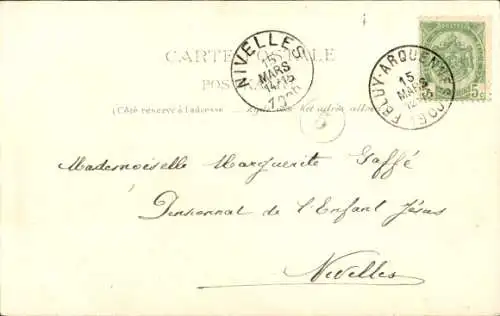 CARTE POSTALE
POS
(Côté réservé à l'adresse
NIVELLES
15
MARS
14-15
FELUY-ARQUENNES
15
MARS
12
190
5c
Mademoiselle Marguerite Gaffé
Pensionnat de l'Enfant Jésus
Nivelles